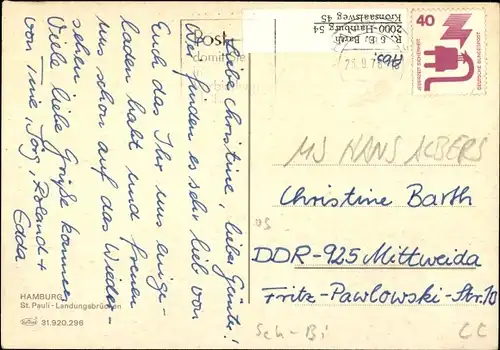 Liebe Christine, lieber Günter!
Wir finden es sehr lieb von
Euch das Ihr uns einge-
laden habt und freuen
uns schon auf das Wieder-
sehen.
Viele liebe Grüße kommen
von Tine, Jörg, Roland +
Edda
HAMBURG
St. Pauli - Landungsbrücken
31.920.296
R. & E. Barth
2000-Hamburg 54
Kronsaalsweg 45
40
JEDERZEIT SICHERHEIT
DEUTSCHE BUNDESPOST
MS HANS ALBERS
Christine Barth
DDR-925 Mittweida
Fritz-Pawlowski-Str. 10
Sch-Bi